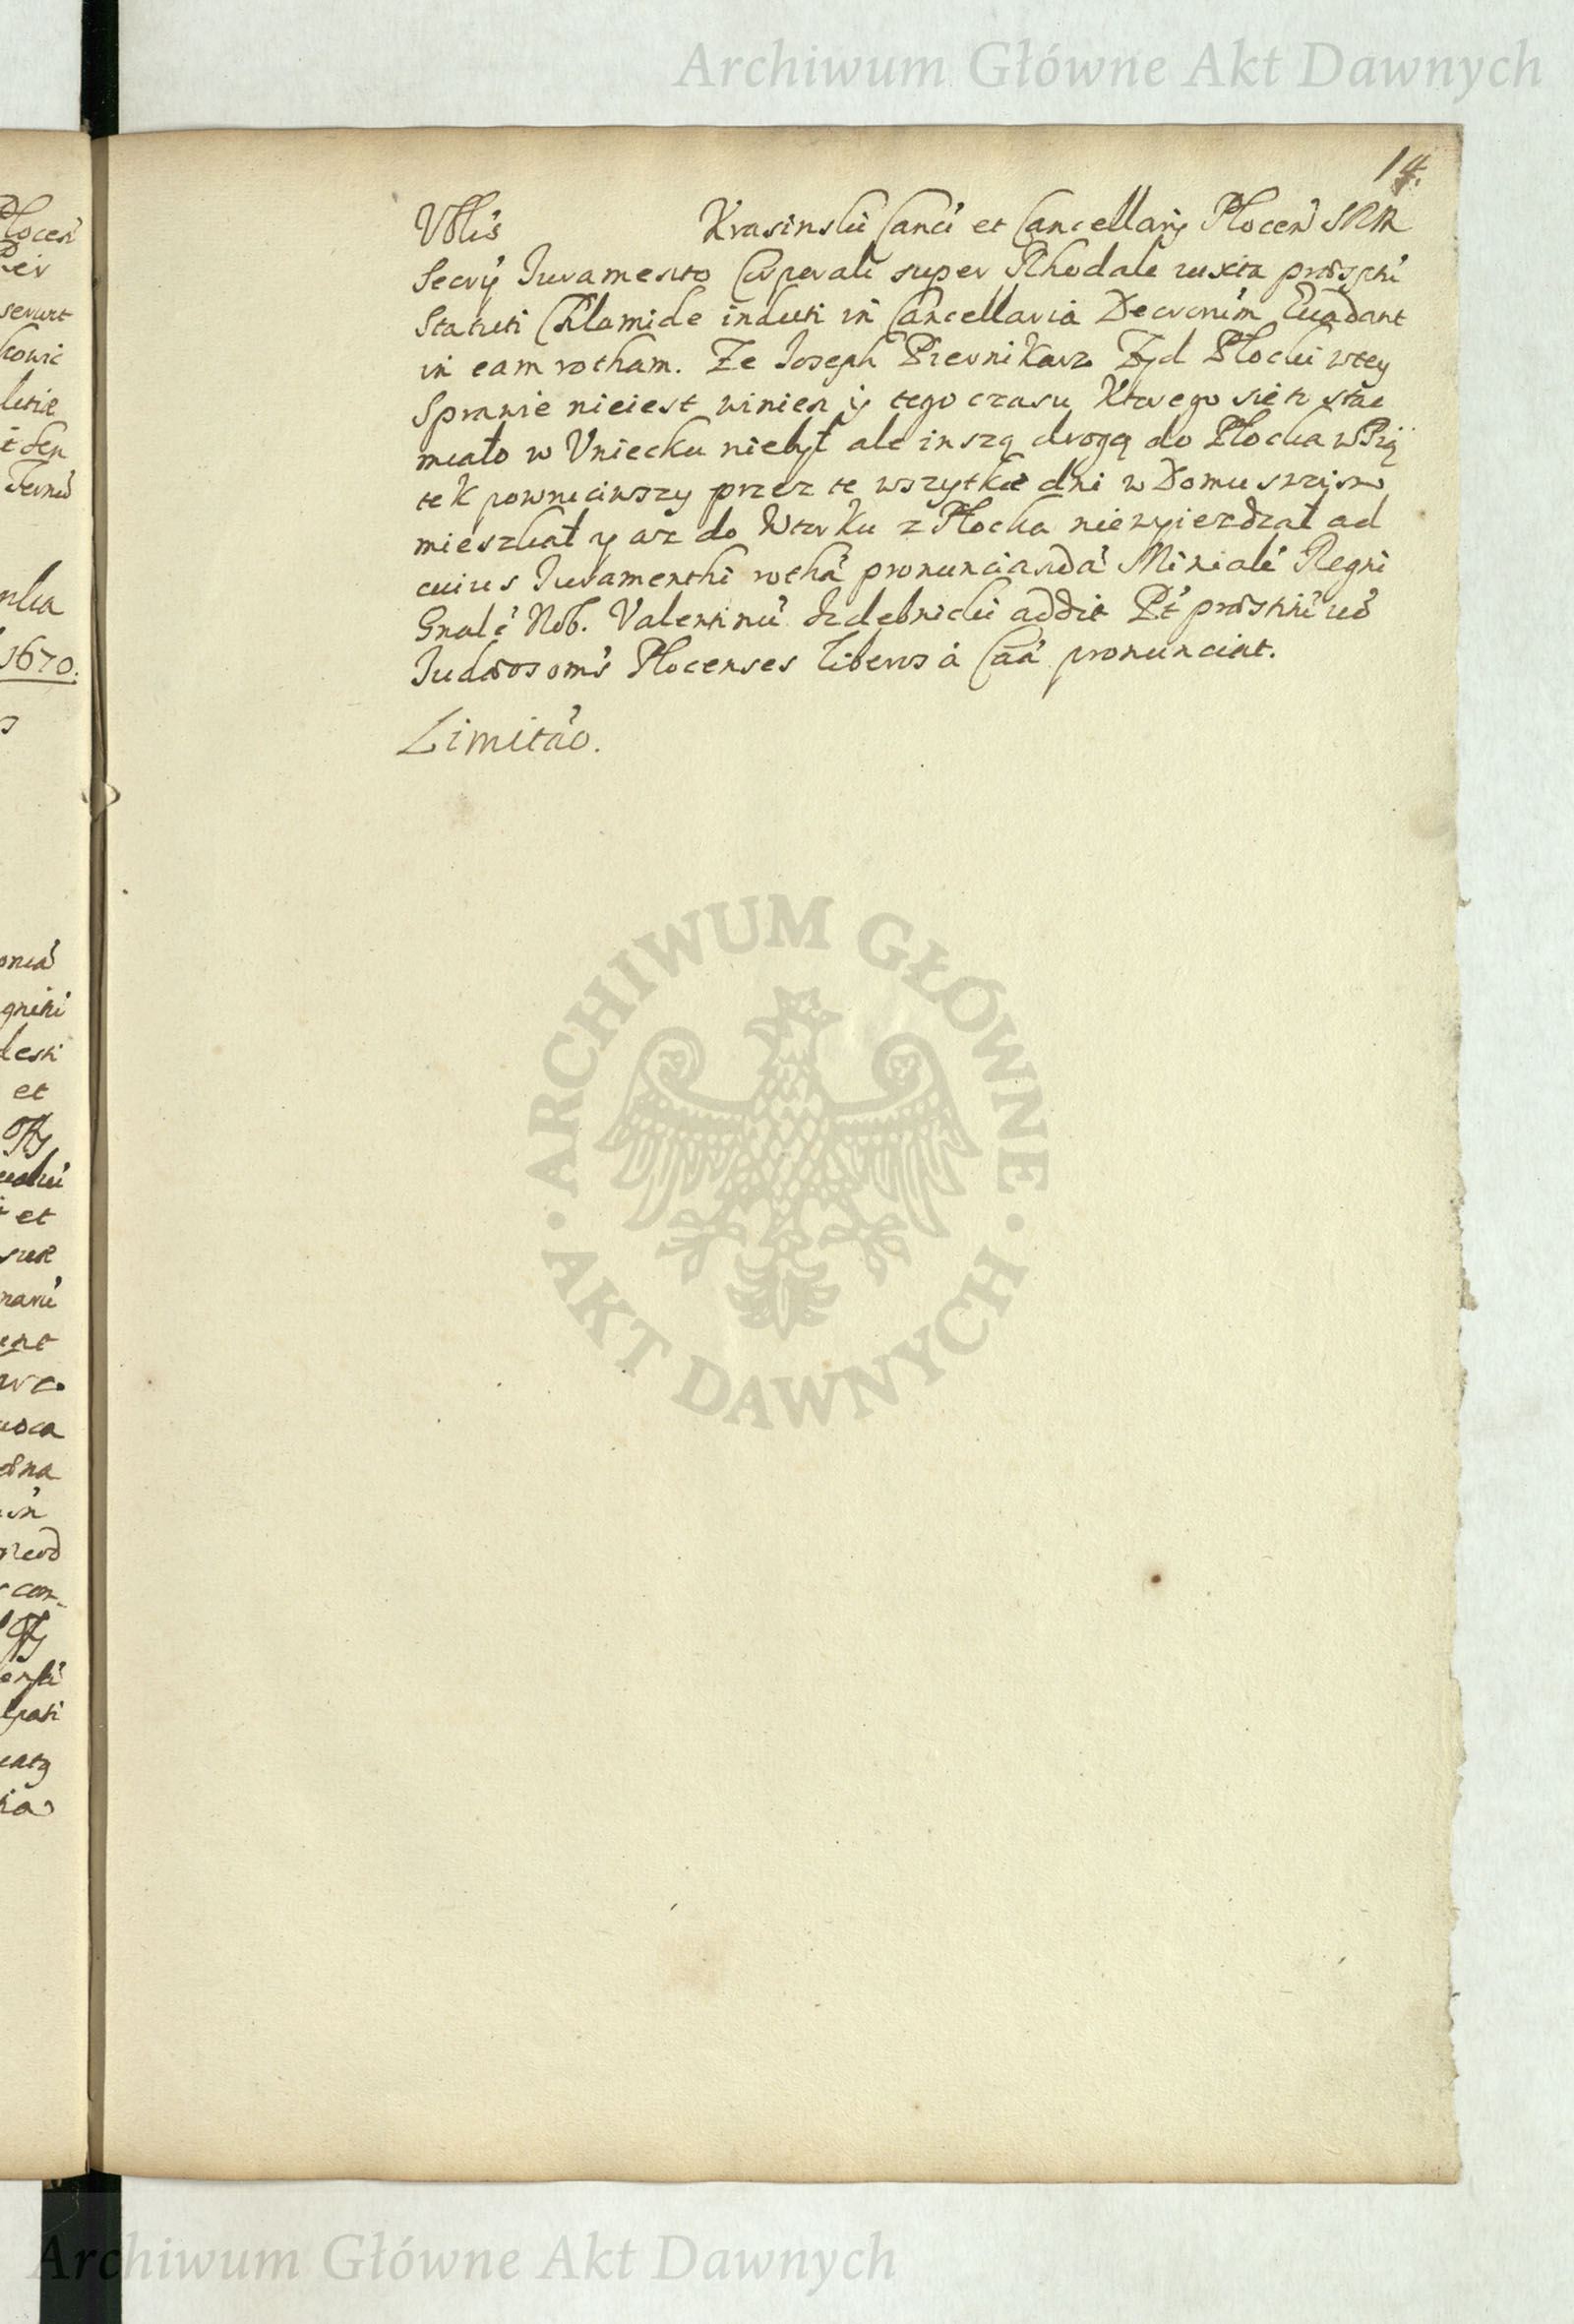 Archiwum Główne Akt Dawnych
14.
Vblis Krasinski Canci et Cancellarij Plocen SRM
Secrij Juramento Corporali super Rhodale iuxta praescpti
Statuti Chlamide induti in Cancellaria Decronum Euadant
in eam rotham. Ze Joseph Piernikarz Zyd Plocki wtey
Sprawie nieiest winien ij tego czasu Ktorego się to stac
miało w Vniecku niebył ale inszą drogą do Płocka w Pią
tek powrociwszy przez te wszytkie dni w Domu swijm
mieszkał y az do Wtorku z Płocka niewyiezdzał ad
cuius Juramenti rotha pronuncianda Minialē Regni
Gnalē Nob. Valentinū addit Pt praestitū uo
Judaeos oms Plocenses liberos a Caa pronunciat.
Limitao.
Plocen
serunt
1670.
et
et
ARCHIWUM GŁÓWNE
AKT DAWNYCH
Archiwum Główne Akt Dawnych